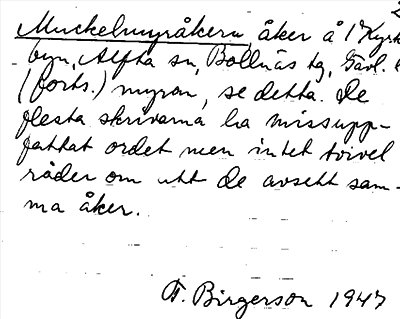 Muckelmyråkern åker å 1 Kyrk
byn, Alfta sn, Bollnäs tg, Gävl.
(forts.) myran, se detta. De
flesta skrivarna ha missupp-
fattat ordet men intet tvivel
råder om att de avsett sam-
ma åker.
F. Birgerson 1947